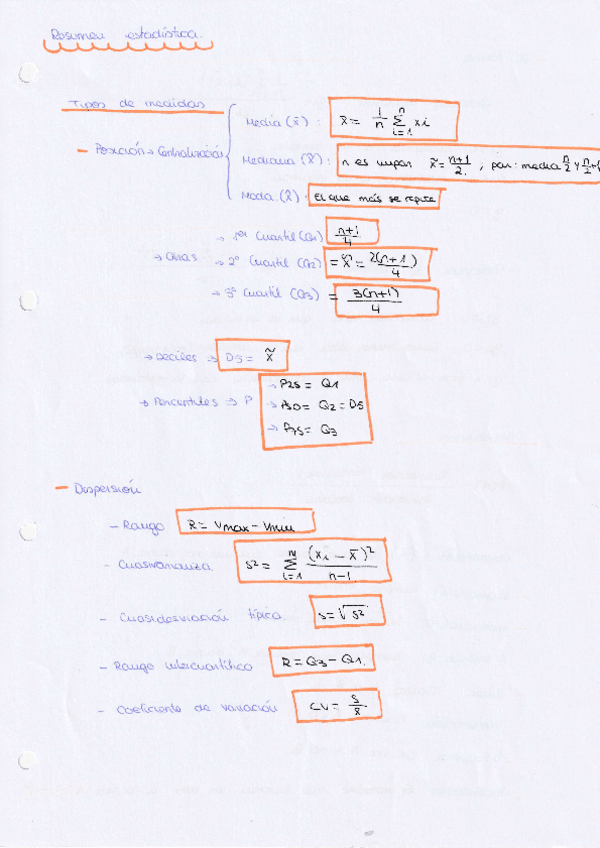 Resumen estadística.
Tipos de medidas
Media (x̄): x̄ = 1/n Σ i=1 n xi
- Posición → Centralización
Mediana (x̃): n es impar x̃ = n+1/2. , par: media n/2 y n/2
Moda (x̂): El que más se repite
→ 1er Cuartil (Q1) n+1/4
→ Otras → 2º Cuartil (Q2) = x̃ = 2(n+1)/4
→ 3º Cuartil (Q3) = 3(n+1)/4
→ Deciles ⇒ D5 = x̃
→ P25 = Q1
→ Percentiles ⇒ P → P50 = Q2 = D5
→ P75 = Q3
- Dispersión
- Rango R = Vmax - Vmin
- Cuasivarianza s² = Σ i=1 n (xi - x̄)²/n-1
- Cuasidesviación típica s = √s²
- Rango intercuartílico R = Q3 - Q1.
- Coeficiente de variación CV = s/x̄